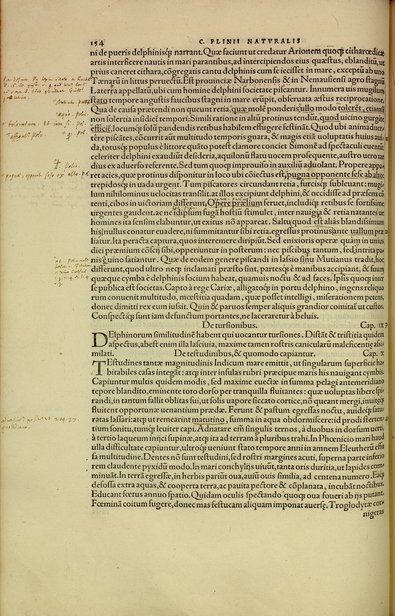 154 C. PLINII NATVRALIS
ni de pueris delphinisq; narrant. Quæ faciunt ut credatur Arionem quoq; citharœdicæ
artis interficere nautis in mari parantibus, ad intercipiendos eius quæstus, eblanditũ, ut
prius caneret cithara, cõgregatis cantu delphinis cum se iecisset in mare, exceptũ ab uno
Tænarũ in litus peruectũ. Est prouinciæ Narbonensis & in Nemausensi agro stagnũ
Laterra appellatũ, ubi cum homine delphini societate piscantur. Innumera uis mugilum
stato tempore angustis faucibus stagni in mare erupit, obseruata æstus reciprocatione.
Qua de causa prætendi non queunt retia, quæ mole ponderis ullo modo tolerẽt, etiamsi
non solertia insidiet tempori. Simili ratione in altũ protinus tendũt, quod uicino gurgite
efficiť, locumq; solũ pandendis retibus habilem effugere festinãt. Quod ubi animaduer-
tere piscantes, cõcurrit aũt multitudo temporis gnara, & magis etiã uoluptatis huius auida,
totusq; populus è littore quãto potest clamore conciet Simonẽ ad spectaculi euentũ.
celeriter delphini exaudiũt desideria, aquilonũ flatu uocem prosequente, austro uero tar-
dius ex aduerso referente. Sed tum quoq; improuiso in auxiliũ aduolant. Propere appa-
ret acies, quæ protinus disponitur in loco ubi cõiectus est, pugna opponente sese ab alto,
trepidosq; in uada urgent. Tum piscatores circundant retia, furcisq; subleuant: mugi-
lum nihilominus uelocitas transilit. at illos excipiunt delphini, & occidisse ad præsens cõ-
tenti, cibos in uictoriam differunt. Opere prælium feruet, includiq; retibus se fortissime
urgentes gaudent. ac ne id ipsum fugã hostiũ stimulet, inter nauigia & retia natantes ue
homines ita sensim elabuntur, ut exitus nõ appareat. Saltu, quod est aliàs blandissimum
his, nullus conatur euadere, ni summittantur sibi retia. egressus protinus ante uallum præ
liatur. Ita peracta captura, quos interemere diripiũt. Sed enixioris operæ quàm in unius
diei præmium cõscij sibi, opperiuntur in posterum: nec piscibus tantum, sed intrita pa-
nis è uino satiantur. Quæ de eodem genere piscandi in Iasio sinu Mutianus tradit, hoc
differunt, quod ultro neq; inclamati præsto sint, partesq; è manibus accipiant, & suum
quæque cymba è delphinis socium habeat, quamuis noctu, & ad faces. Ipsis quoq; inter
se publica est societas. Capto à rege Cariæ, alligatoq; in portu delphino, ingens reliquo-
rum conuenit multitudo, mœstitia quadam, quæ posset intelligi, miserationem petens,
donec dimitti rex eum iussit. Quin & paruos semper aliquis grandior comitat ut custos.
Conspectiq; sunt iam defunctum portantes, ne laceraretur à beluis.
De tursionibus. Cap. IX.
Delphinorum similitudinẽ habent qui uocantur tursiones. Distãt & tristitia quidem
aspectus, abest enim illa lasciuia, maxime tamen rostris canicularũ maleficentiæ assi-
milati.
De testudinibus, & quomodo capiantur. Cap. X
Testudines tantæ magnitudinis Indicum mare emittit, ut singularum superficie ha-
bitabiles casas integãt: atq; inter insulas rubri præcipue maris his nauigant cymbis.
Capiuntur multis quidem modis, sed maxime euectæ in summa pelagi antemeridiano
tepore blandito, eminente toto dorso per tranquilla fluitantes: quæ uoluptas libere spi-
randi, in tantum fallit oblitas sui, ut solis uapore siccato cortice, nõ queant mergi, inuitæq;
fluitent opportunæ uenantium prædæ. Ferunt & pastum egressas noctu, auideq; satu-
ratas lassari: atq; ut remeauerint matutino, summa in aqua obdormiscere: id prodi sterten-
tium sonitu, tumq; leuiter capi. Adnatare em̃ singulis ternos, à duobus in dorsum uerti,
à tertio laqueum inijci supinæ, atq; ita ad terram à pluribus trahi. In Phœnicio mari haud
ulla difficultate capiuntur, ultroq; ueniunt stato tempore anni in amnem Eleutherũ effu-
sa multitudine. Dentes nõ sunt testudini, sed rostri margines acuti, superna parte inferio-
rem claudente pyxidũ modo. In mari conchylijs uiuũt, tanta oris duritia, ut lapides com-
minuãt. In terrã egressæ, in herbis pariũt oua, auiũ ouis similia, ad centena numero. Eaq;
defossa extra aquas, & cooperta terra, ac pauita pectore & cõplanata, incubãt noctibus.
Educant fœtus annuo spatio. Quidam oculis spectandoq; quoq; oua foueri ab ijs putant.
Fœminã coitum fugere, donec mas festucam aliquam imponat auersæ. Troglodytæ cor-
nigeras